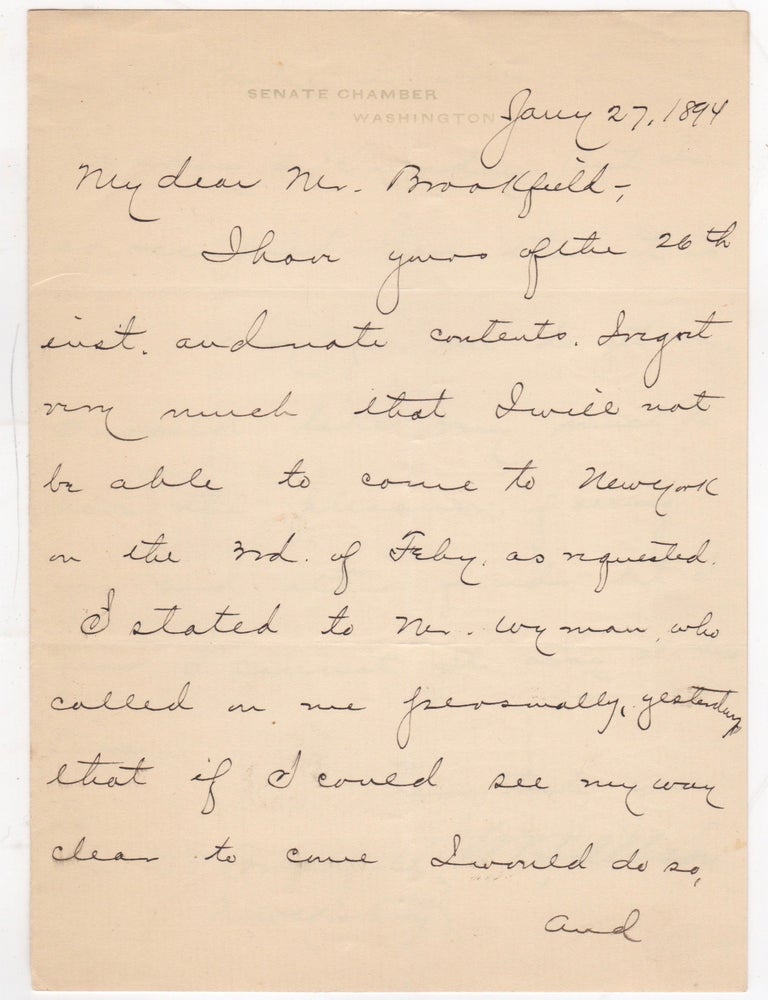 SENATE CHAMBER
WASHINGTON
Jany 27, 1894
My dear Mr. Brookfield -,
I have yours of the 26th
inst. and note contents. I regret
very much that I will not
be able to come to New York
on the 3rd. of Feby. as requested.
I stated to Mr. Wyman, who
called on me personally, yesterday,
that if I could see my way
clear to come I would do so,
and